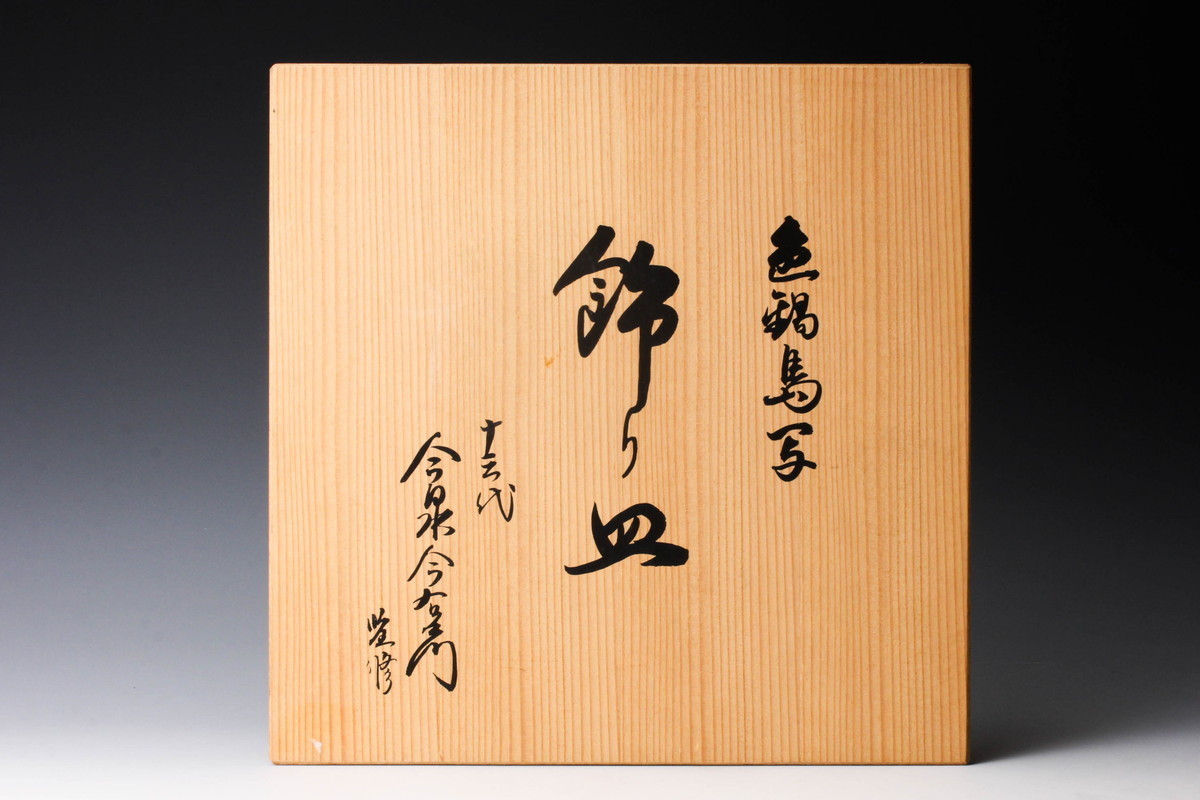 色鍋島写
飾り皿
十三代
今泉今右衛門
監修